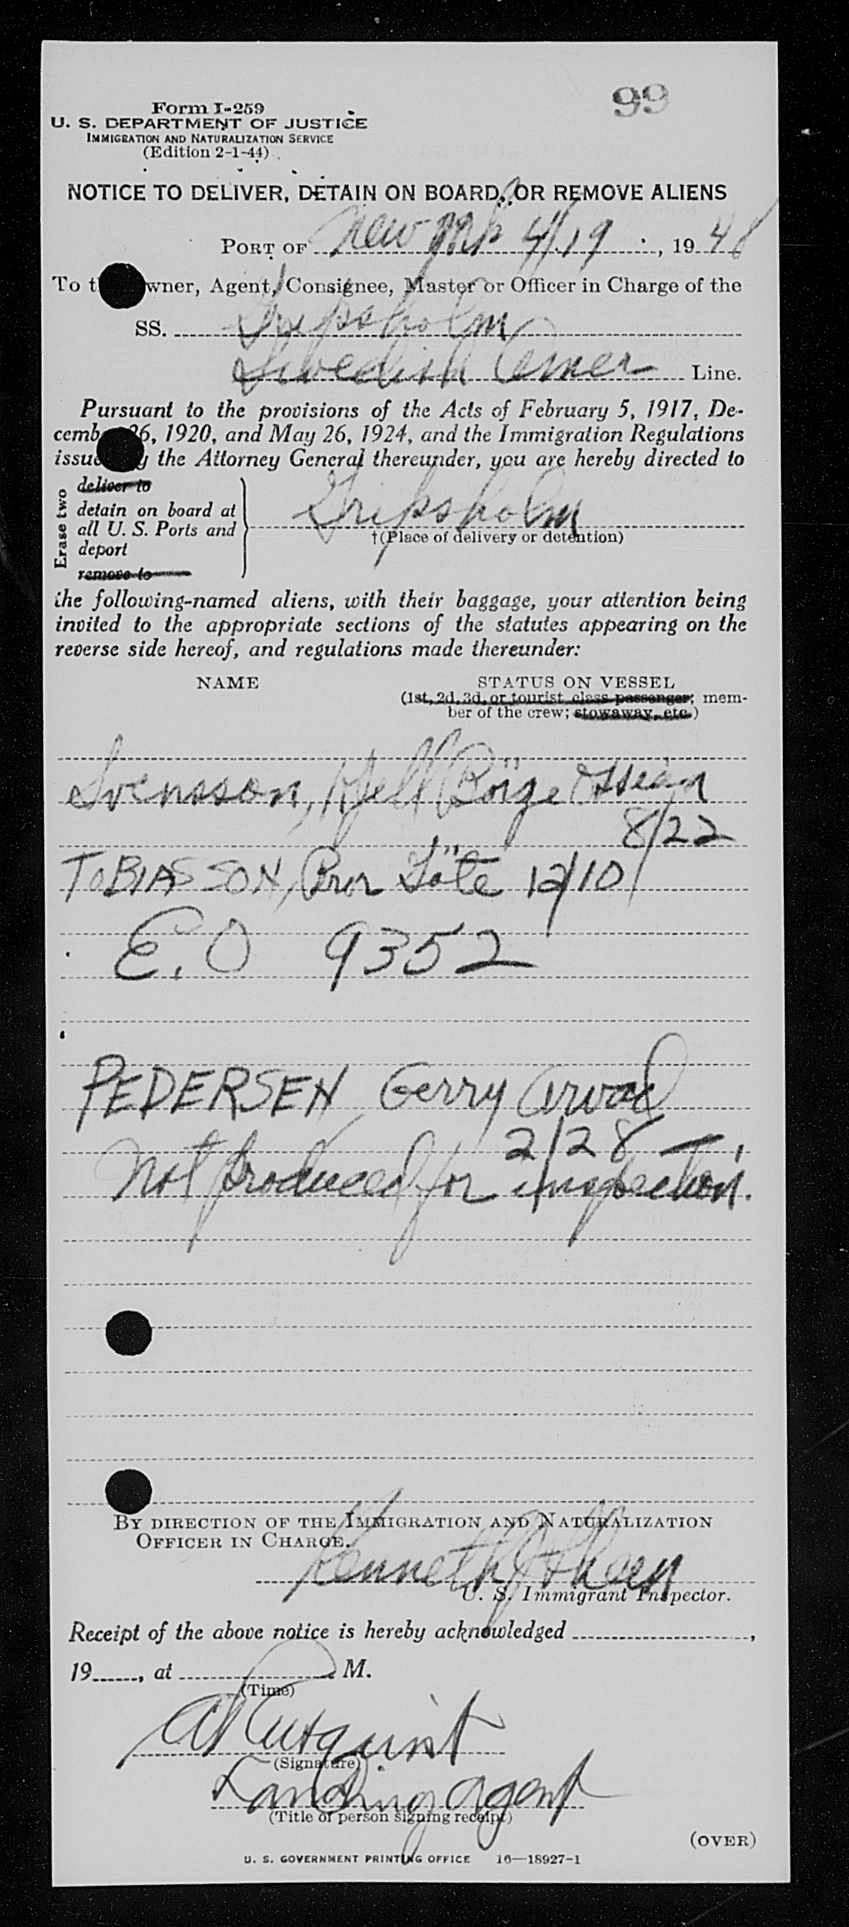 99
Form I-259
U. S. DEPARTMENT OF JUSTICE
IMMIGRATION AND NATURALIZATION SERVICE
(Edition 2-1-44)
NOTICE TO DELIVER, DETAIN ON BOARD, OR REMOVE ALIENS
PORT OF New York 4/19, 1948
To t wner, Agent, Consignee, Master or Officer in Charge of the
SS. Gripsholm
Swedish Amer Line.
Pursuant to the provisions of the Acts of February 5, 1917, De-
cemb 26, 1920, and May 26, 1924, and the Immigration Regulations
issue y the Attorney General thereunder, you are hereby directed to
Erase two
deliver to
detain on board at
all U. S. Ports and
deport
remove to
Gripsholm
†(Place of delivery or detention)
the following-named aliens, with their baggage, your attention being
invited to the appropriate sections of the statutes appearing on the
reverse side hereof, and regulations made thereunder:
NAME STATUS ON VESSEL
(1st, 2d, 3d, or tourist class passenger; mem-
ber of the crew; stowaway, etc.)
Svensson, Kjell Börge Ossian
8/22
TOBIASSON, 12/10
E.O 9352
PEDERSEN, Gerry Arvad
2/28 —
Not produced for inspection.
BY DIRECTION OF THE IMMIGRATION AND NATURALIZATION
OFFICER IN CHARGE.
Kenneth J
U. S. Immigrant Inspector.
Receipt of the above notice is hereby acknowledged ,
19 , at . M.
(Time)
(Signature)
Landing Agent
(Title of person signing receipt)
(OVER)
U. S. GOVERNMENT PRINTING OFFICE 16—18927-1